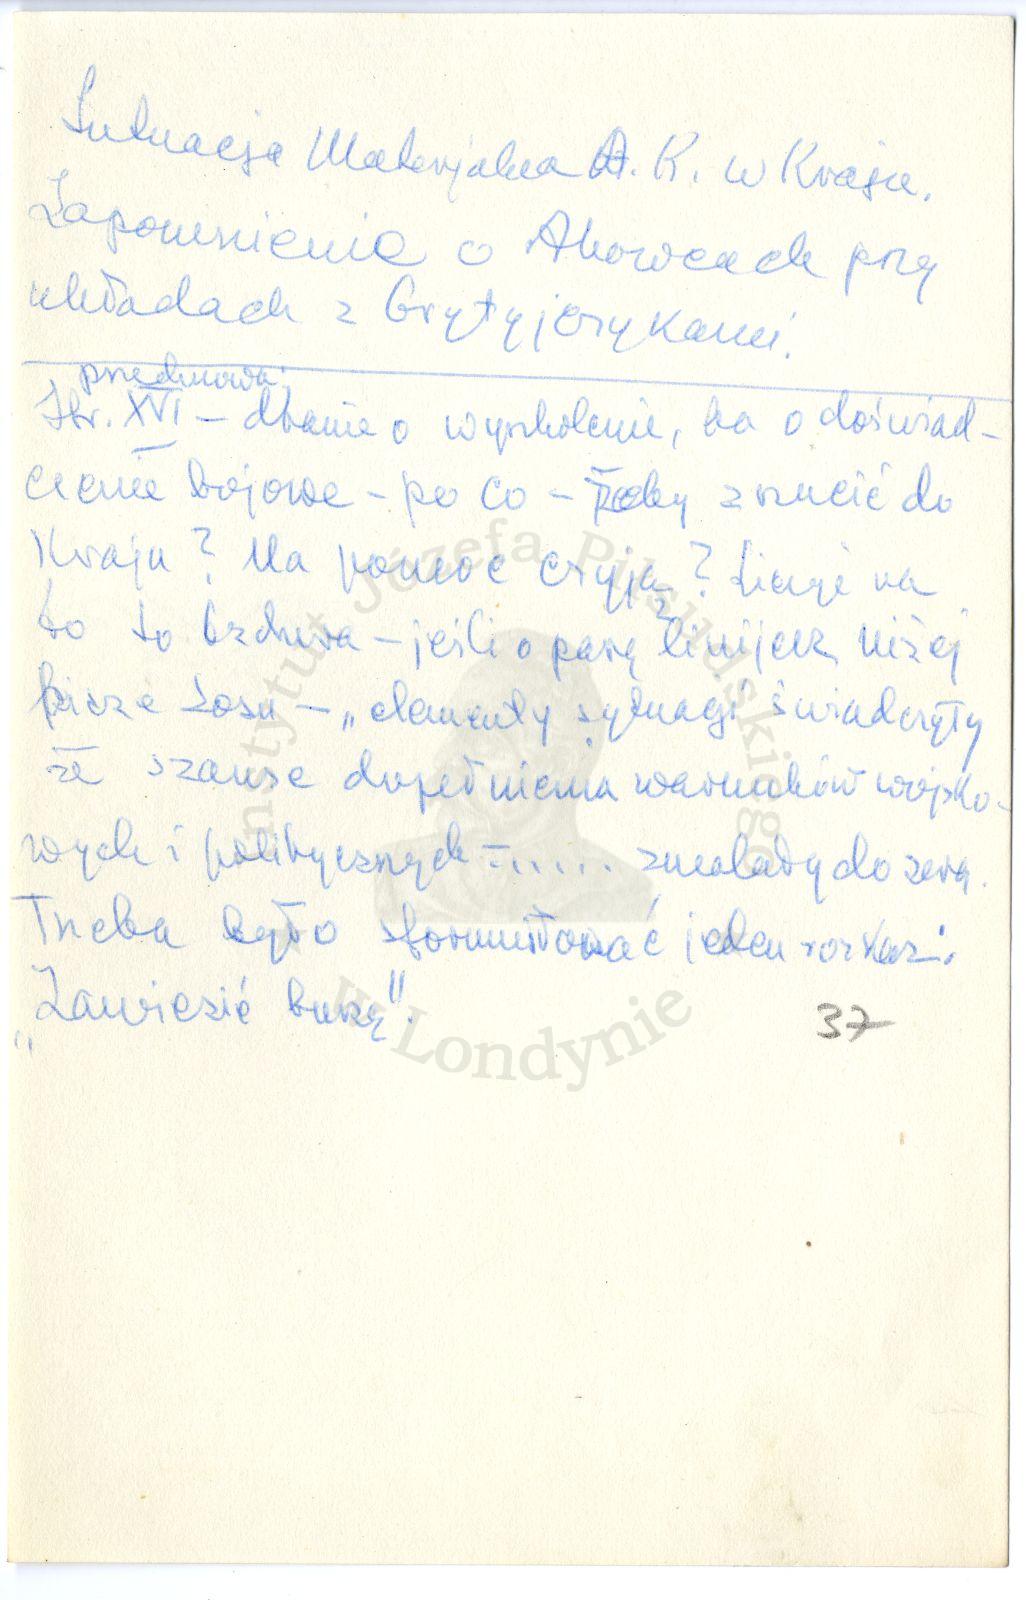 Sytuacja Materjalna A. K. w Kraju.
Zapomnienie o Akowcach przy
układach z Brytyjczykami.
przedmowa.
Str. XVI – dbanie o wyszkolenie, ba o doświad-
czenie bojowe – po co – żeby zrzucić do
Kraju? Na pomoc czyją? Liczyć na
to to bzdura – jeśli o parę linijek niżej
pisze Sosn – „elementy sytuacji świadczyły
że szanse dopełnienia warunków wojsko-
wych i politycznych – ..... zmalały do zera.
Trzeba było sformułować jeden rozkaz:
„Zawiesić burzę".
37
Instytut Józefa Piłsudskiego
w Londynie